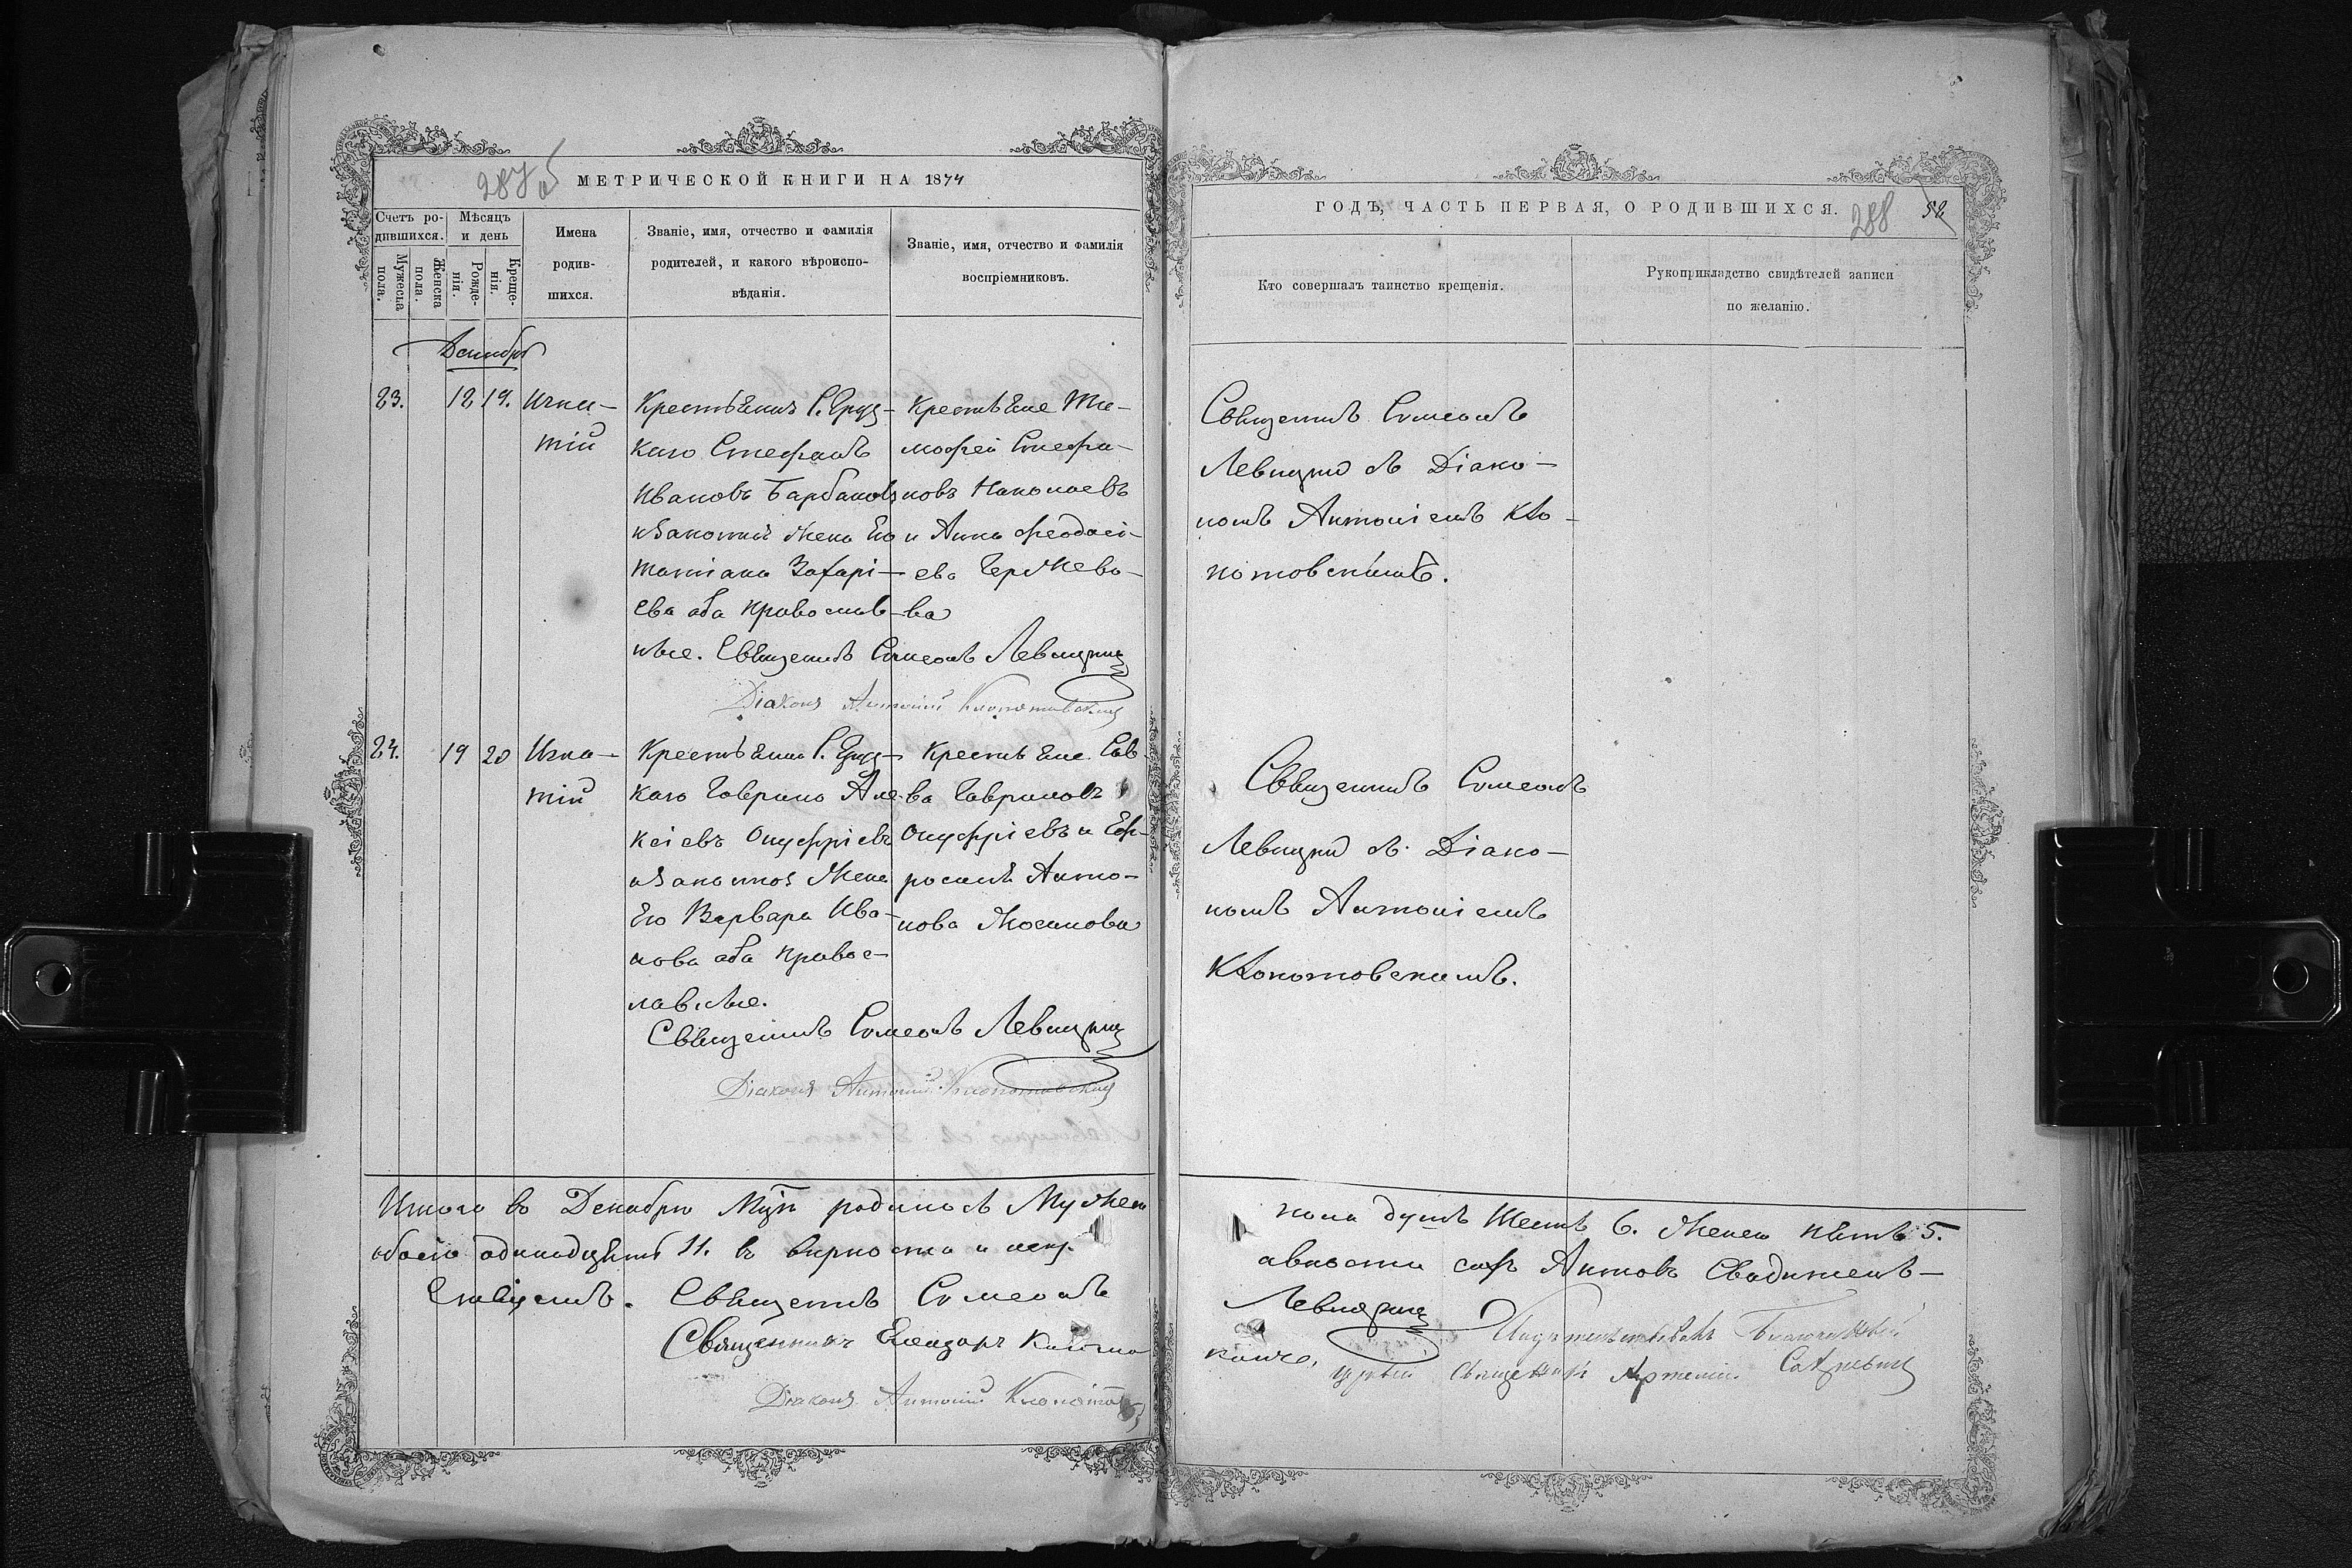 287 об
МЕТРИЧЕСКОЙ КНИГИ НА 1874
Счетъ родившихся.
Мужеска пола.
Женска пола.
Мѣсяцъ и день
Рожденія.
Крещенія.
Имена
родив-
шихся.
Званіе, имя, отчество и фамилія
родителей, и какого вѣроиспо-
вѣданія.
Званіе, имя, отчество и фамилія
воспріемниковъ.
Декабрь
23. 12 19.
Игна-
тій
Крестьянинъ С. Груш-
каго Стефанъ
Ивановъ Барбаковъ
и Законная Жена Его
Татіана Захарі-
ева оба православ-
ные. Священникъ Симеонъ Левицкій
Діаконъ Антоній Клопотовскій
Крестьяне Ти-
мофей Стефа-
новъ Николаевъ
и Анна Феодосі-
ева
ва
24. 19 20
Игна-
тій
Крестьянинъ С.
каго Гаврило Але-
ксіевъ Онуфріевъ
и Законная Жена
Его Варвара Ива-
нова оба правос-
лавные.
Священникъ Симеонъ Левицкій
Діаконъ Антоній Клопотовскій
Крестьяне Сав-
ва Гавриловъ
Онуфріевъ и Еф-
росинія Анто-
нова
Итого въ Декабрѣ Мцѣ родилось Мужеск
обоего одинадцять 11. въ вѣрности и испр-
Священникъ Симеонъ
Священникъ
Діаконъ Антоній Клопотов
ГОДЪ, ЧАСТЬ ПЕРВАЯ, О РОДИВШИХСЯ.
288
52
Кто совершалъ таинство крещенія.
Рукоприкладство свидѣтелей записи
по желанію.
Священникъ Симеонъ
Левицкій съ Діако-
номъ Антоніемъ Кло-
потовскимъ.
Священникъ Симеонъ
Левицкій съ Діако-
номъ Антоніемъ
Клопотовскимъ.
пола душъ Шесть 6. Женск пять 5.
авности сихъ Актовъ Свидѣтель-
Левицкій
Священникъ Артемій